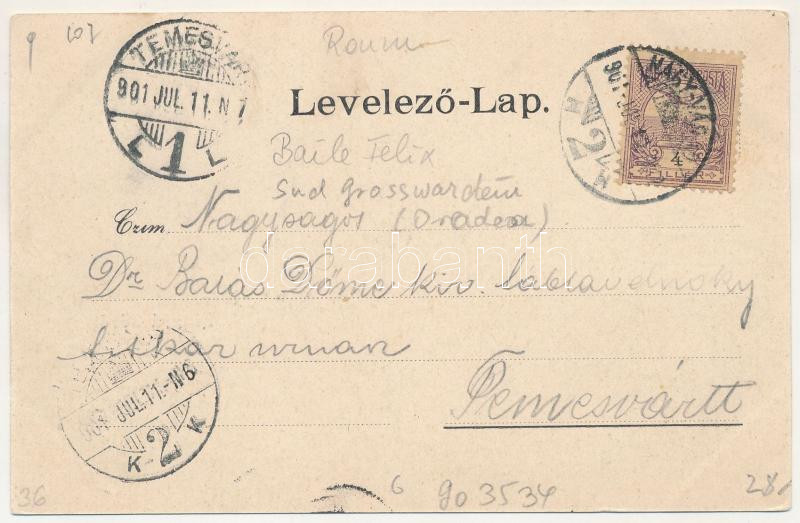 9 107
Roum
TEMESVÁR
901 JUL. 11. N 7
L 1 L
NAGYVÁRAD
901
M 2 M
4
FILLÉR
Levelező-Lap.
Baile Felix
Sud Grosswardein
Czim Nagyságos (Oradea)
Dr Balás Döme kir.
titkár urnak
Temesvártt
901 JUL. 11.-N6
K 2 K
36
6
90 3534
28
darabanth